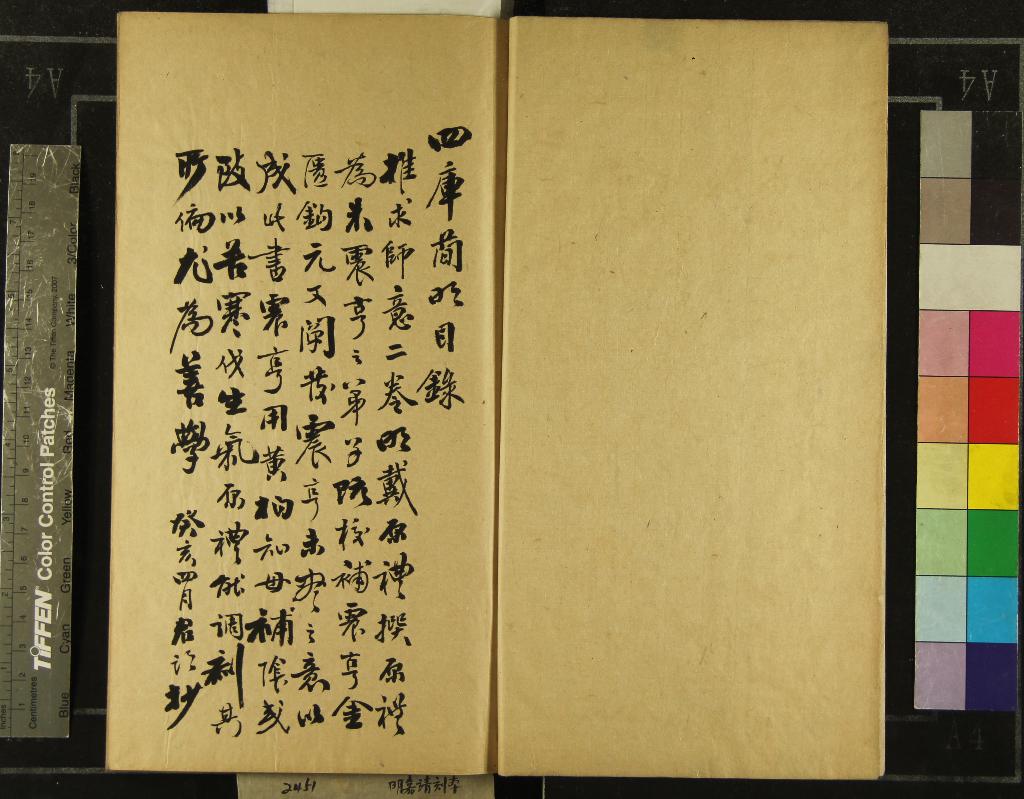 四庫簡明目錄
推求師意二卷明戴原禮撰原禮
為朱震亨之弟子既校補震亨金
匱鉤元又闡發震亨未盡之意以
成此書震亨用黃柏知母補陰或
致以苦寒伐生氣原禮能調劑其
所偏尤為善學 癸亥四月君誼抄
2451
明嘉靖刻本
A4
A4
A4
TIFFEN Color Control Patches
© The Tiffen Company, 2007
Inches
Centimetres
Blue
Cyan
Green
Yellow
Red
Magenta
White
3/Color
Black